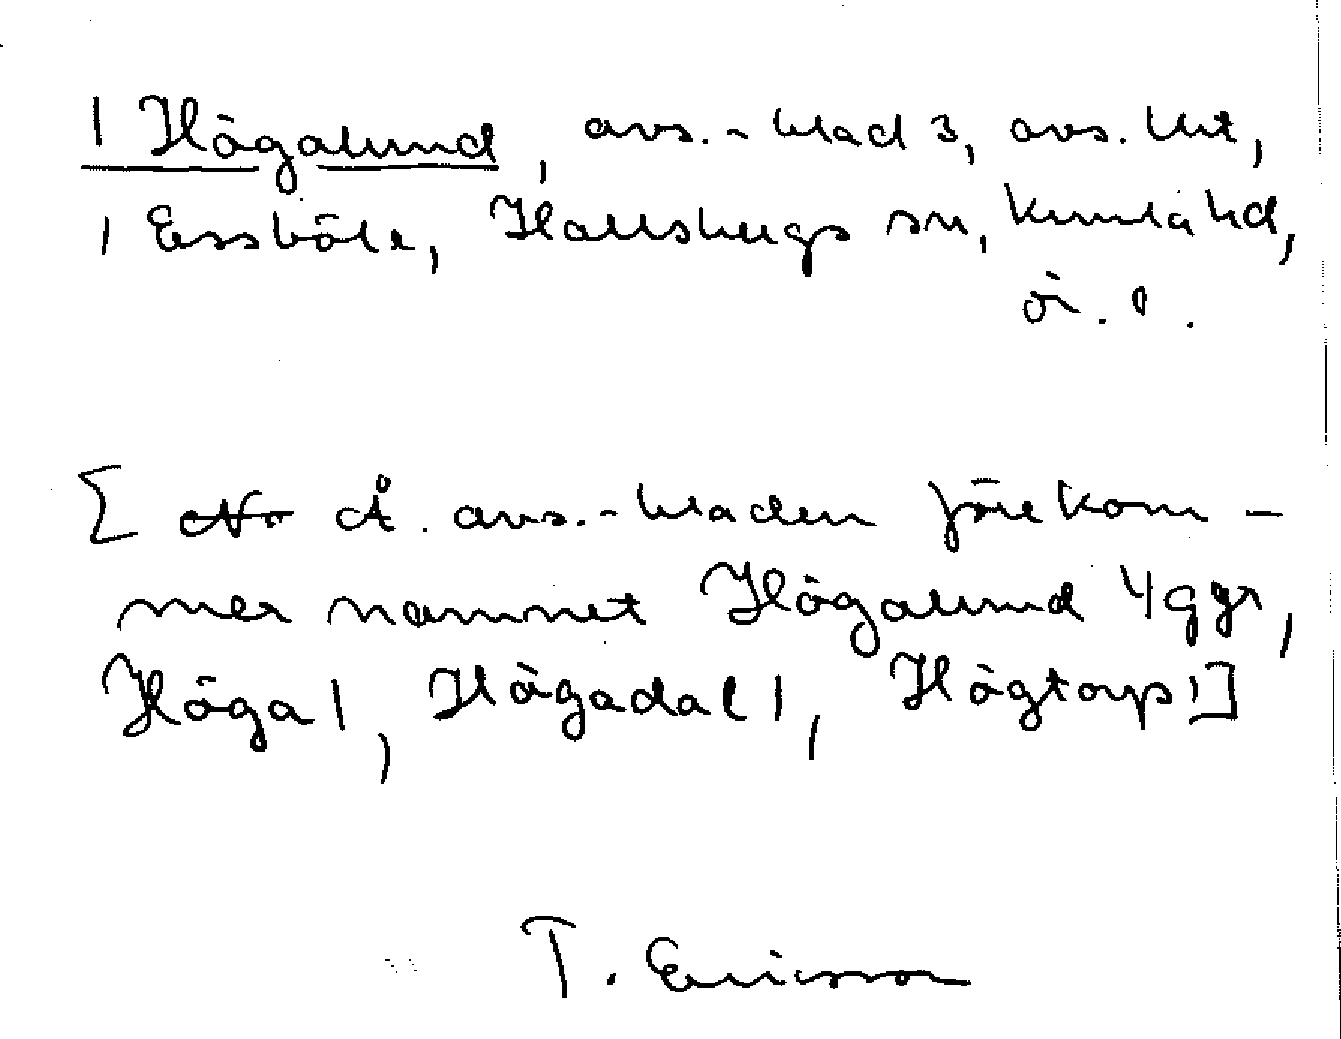 1 Högalund, avs.-blad 3, avs. litt,
1 Essböle, Hallsbergs sn, Kumla hd,
ö. l.
[ Å. avs.-bladen förekom-
mer namnet Högalund 4 ggr,
Höga 1, Högadal 1, Högtorp 1]
T. Ericsson